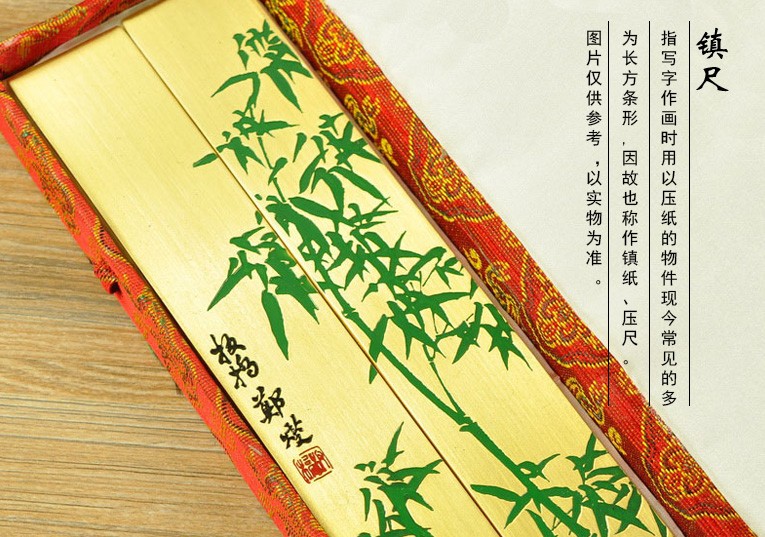 镇尺
指写字作画时用以压纸的物件现今常见的多
为长方条形，因故也称作镇纸、压尺。
图片仅供参考，以实物为准。
板桥郑燮